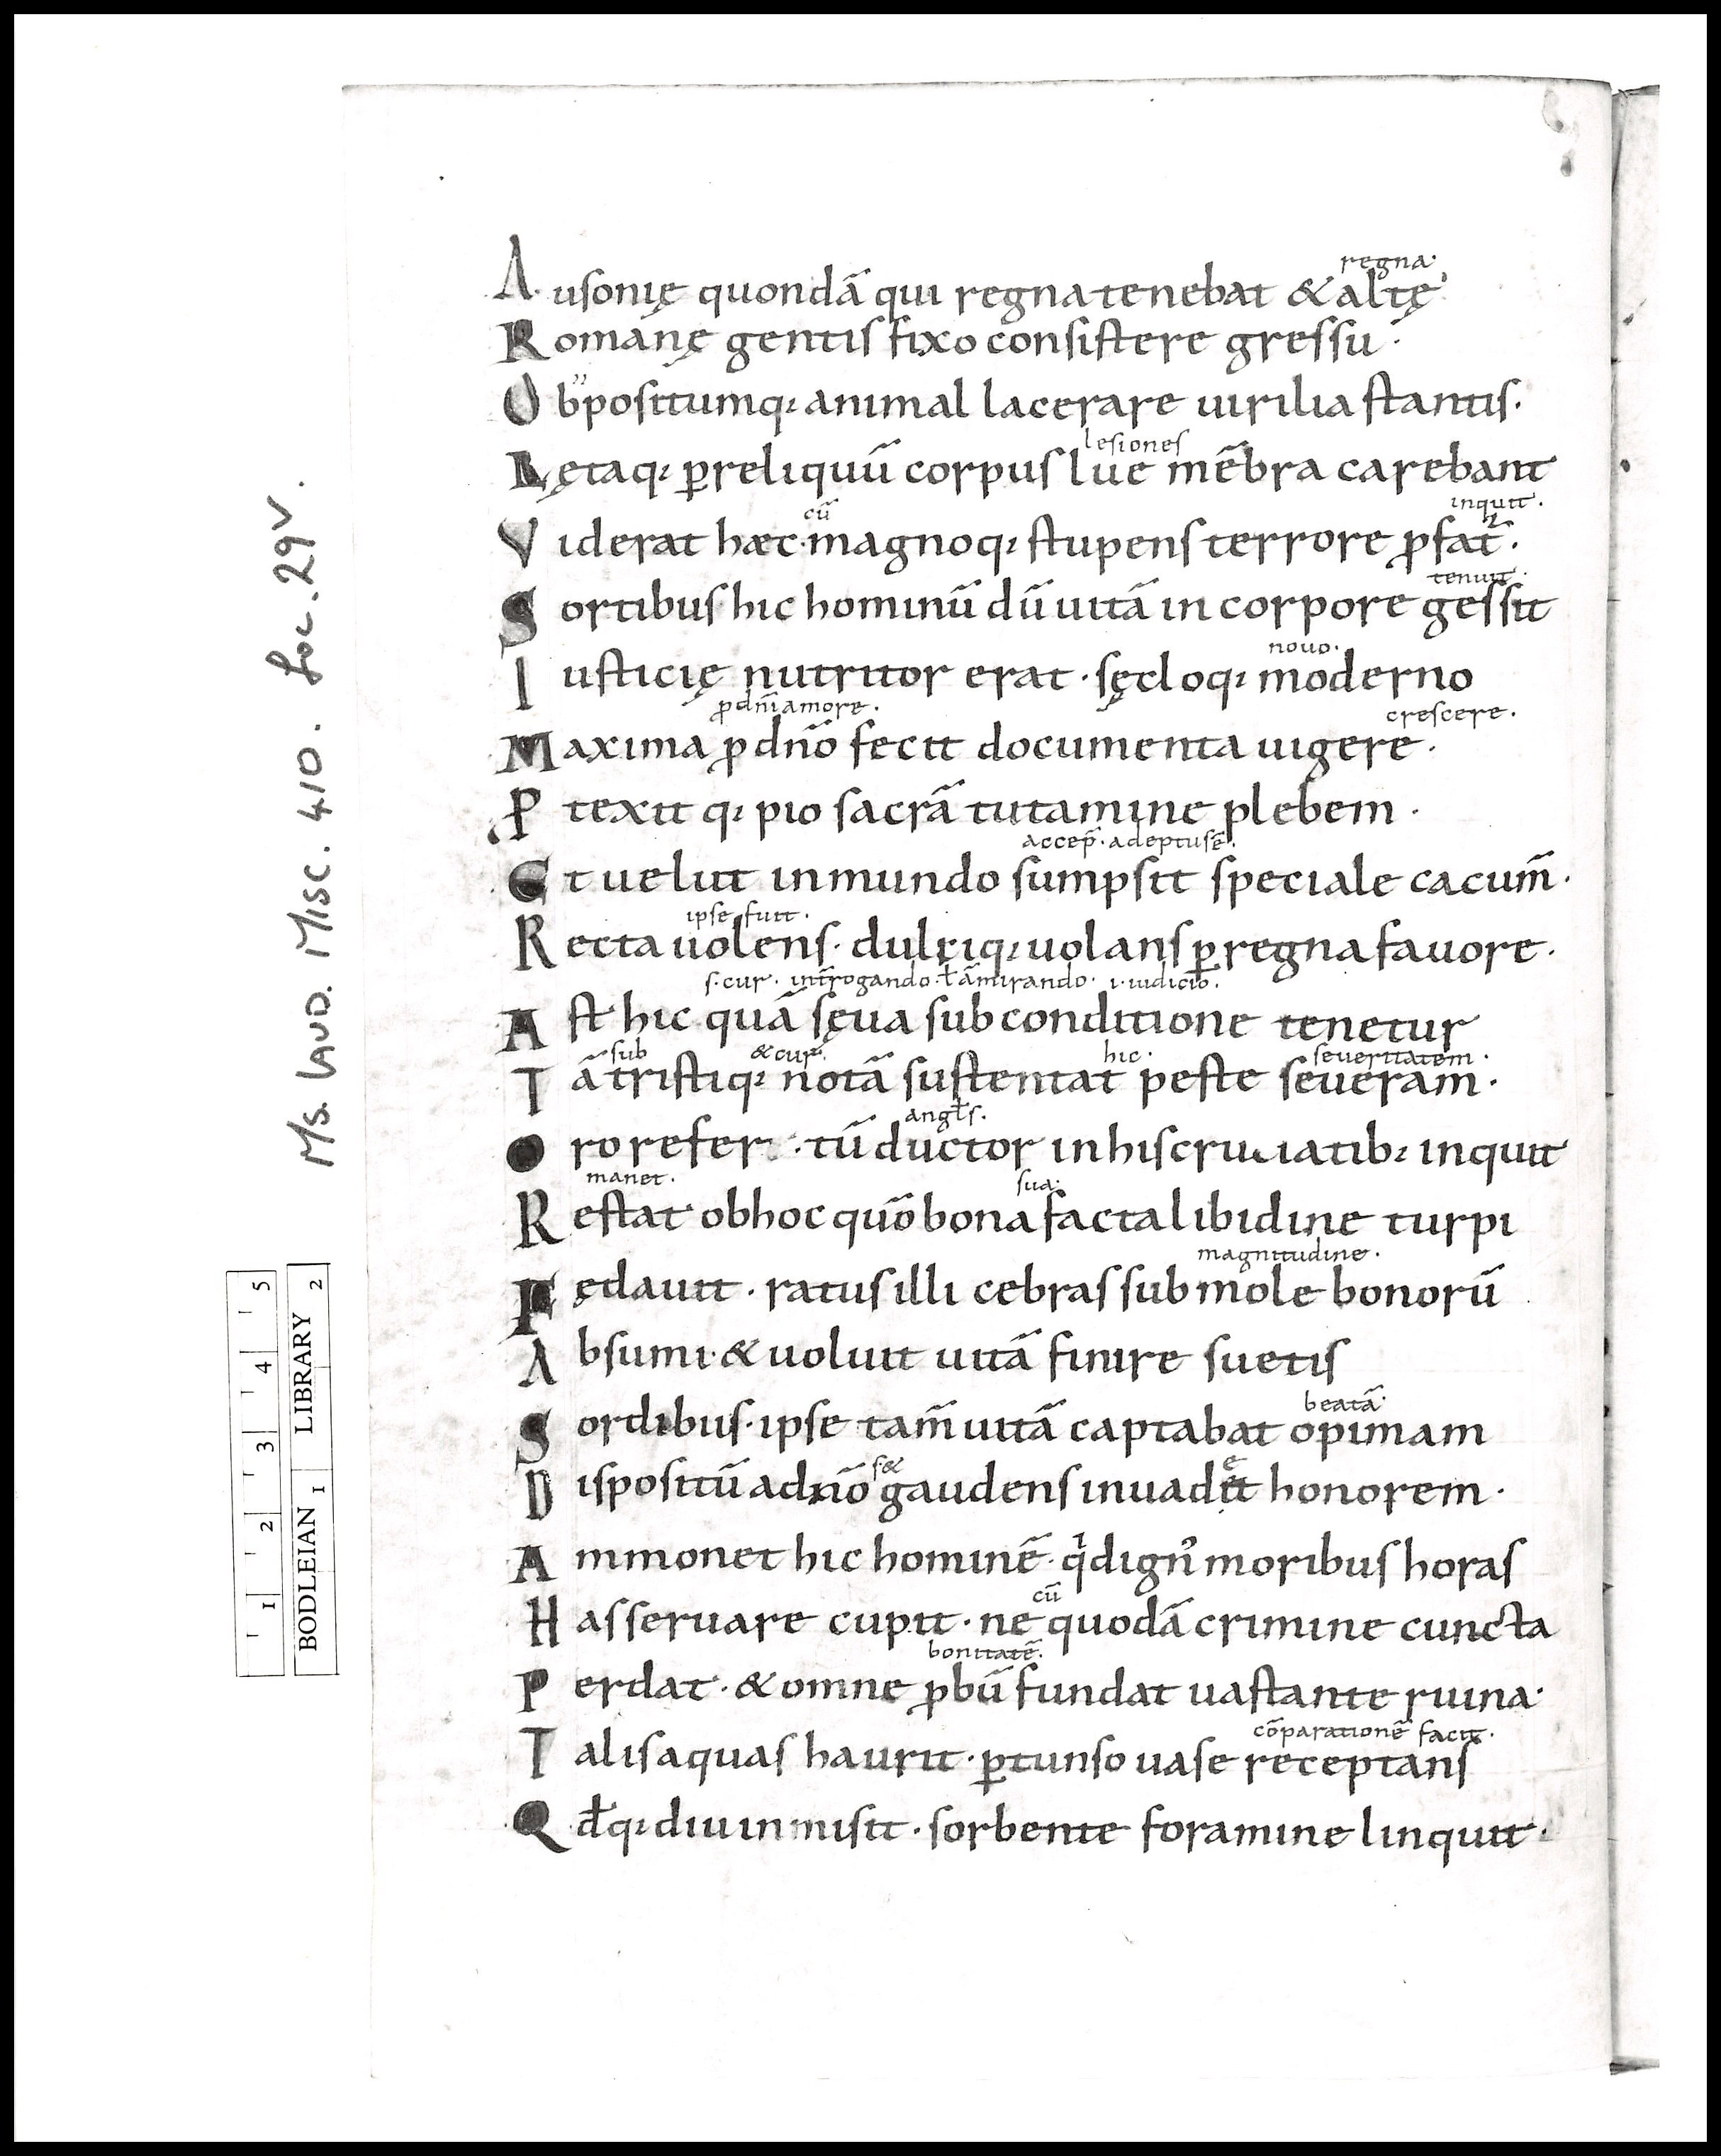 regna·
Ausonię quondā qui regna tenebat & altę
Romanę gentis fixo consistere gressu·
Obpositumq; animal lacerare uirilia stantis·
lesiones
Lętaq; ꝑ reliquū corpus lue mēbra carebant
cū inquit·
Viderat hæc· magnoq; stupens terrore ꝓfat̄·
tenuit·
Sortibus hic hominū dū uitā in corpore gessit
nouo·
Iusticię nutritor erat· sęcloq; moderno
ꝓ dn̄i amore· crescere·
Maxima ꝓ dn̄o fecit documenta uigere·
Ꝓtexit q; pio sacrā tutamine plebem·
accep̄· adeptus ē·
Et uelut in mundo sumpsit speciale cacum̄·
ipse fuit·
Recta uolens· dulciq; uolans ꝑ regna fauore·
s· cur· int̄rogando· ł āmirando· i· iudicio·
Ast hic quā sęua sub conditione tenetur
sub & cur· hic· seueritatem·
Tā tristiq; notā sustentat peste seueram·
angl̄s·
Oro refer· tū ductor in his cruciatib; inquit
manet· sua·
Restat ob hoc quō bona facta libidine turpi
magnitudine·
Fędauit· ratus illi cebras sub mole bonorū
Absumi· & uoluit uitā finire suetis
beatā·
Sordibus· ipse tam̄ uitā captabat opimam
s· & e
Dispositū a dn̄o gaudens inuadit honorem·
Ammonet hic hominē· qͥ dignꝰ moribus horas
cū
Has seruare cupit· ne quodā crimine cuncta
bonitatē·
Perdat· & omne ꝓbū fundat uastante ruina·
cōparationē facit·
Talis aquas haurit· ꝑtunso uase receptans
Qđq; diu inmisit· sorbente foramine linquit·
Ms. Laud. Misc. 410. foc. 29v.
BODLEIAN LIBRARY
1 2
1 2 3 4 5